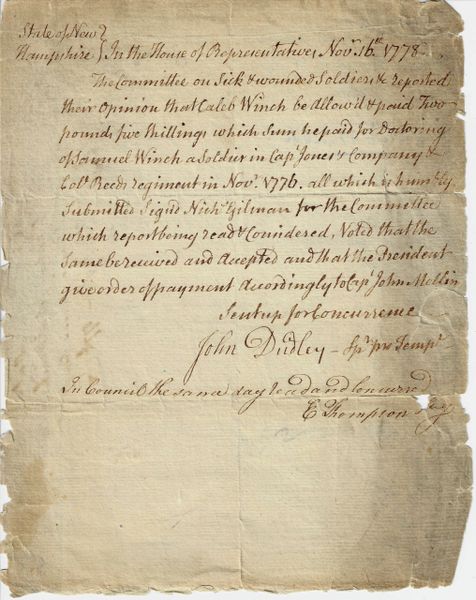 State of New
Hampshire } In the House of Representatives Novr 16th 1778
The Committee on Sick & wounded Soldiers &c reported
their Opinion that Caleb Winch be Allow'd & paid Two
pounds five Shillings which Sum he paid for Doctoring
of Samuel Winch a Soldier in Capt Jones's Company &
Colo Reeds regiment in Novr 1776. all which is humbly
Submitted Signd Nichs Gilman for the Committee
which report being read & Considered, Voted that the
Same be received and accepted and that the President
give order of payment Accordingly to Capt John Mellin
Sent up for Concurrence
John Dudley - Spr pro Tempr
In Council the same day read and Concurred
E Thompson Secy